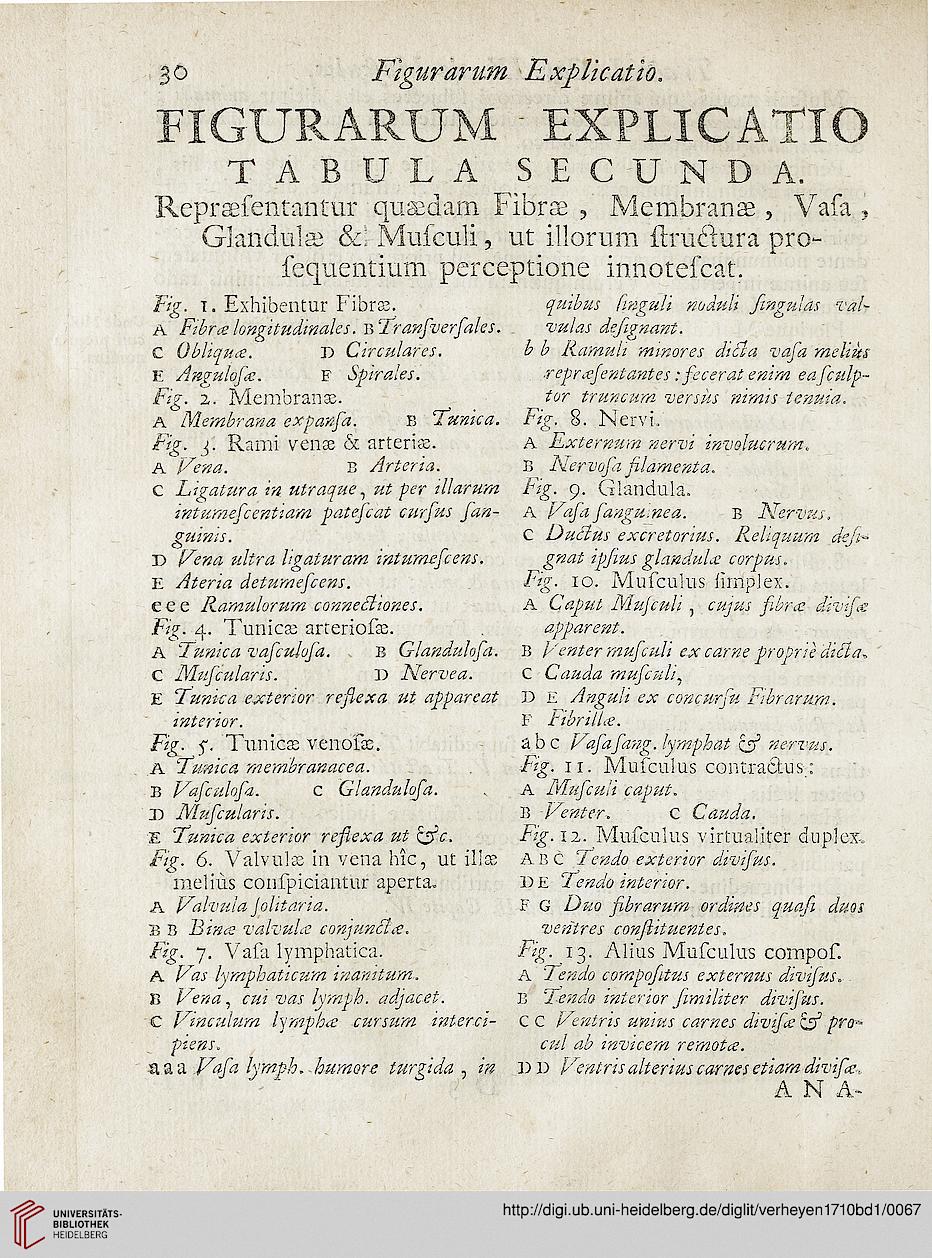 30 Figurarum Explicatio.
FIGURARUM EXPLICATIO
TABULA SECUNDA.
Repræſentantur quædam Fibræ, Membranæ, Vaſa,
Glandulæ & Muſculi, ut illorum ſtructura pro-
ſequentium perceptione innoteſcat.
Fig. 1. Exhibentur Fibræ.
A Fibræ longitudinales. B Tranſverſales.
C Obliquæ. D Circulares.
E Anguloſæ. F Spirales.
Fig. 2. Membranæ.
A Membrana expanſa. B Tunica.
Fig. 3. Rami venæ & arteriæ.
A Vena. B Arteria.
C Ligatura in utraque, ut per illarum
intumeſcentiam pateſcat curſus ſan-
guinis.
D Vena ultra ligaturam intumeſcens.
E Ateria detumeſcens.
e e e Ramulorum connectiones.
Fig. 4. Tunicæ arterioſæ.
A Tunica vaſculoſa. B Glanduloſa.
C Muſcularis. D Nervea.
E Tunica exterior reflexa ut appareat
interior.
Fig. 5. Tunicæ venoſæ.
A Tunica membranacea.
B Vaſculoſa. C Glanduloſa.
D Muſcularis.
E Tunica exterior reflexa ut &c.
Fig. 6. Valvulæ in vena hîc, ut illæ
meliùs conſpiciantur aperta.
A Valvula ſolitaria.
B B Binæ valvulæ conjunctæ.
Fig. 7. Vaſa lymphatica.
A Vas lymphaticum inanitum.
B Vena, cui vas lymph. adjacet.
C Vinculum lymphæ curſum interci-
piens.
a a a Vaſa lymph. humore turgida, in
quibus ſinguli noduli ſingulas val-
vulas deſignant.
b b Ramuli minores dicta vaſa meliùs
repræſentantes: fecerat enim ea ſculp-
tor truncum verſùs nimis tenuia.
Fig. 8. Nervi.
A Externum nervi involucrum.
B Nervoſa filamenta.
Fig. 9. Glandula.
A Vaſa ſanguinea. B Nervus.
C Ductus excretorius. Reliquum deſi-
gnat ipſius glandulæ corpus.
Fig. 10. Muſculus ſimplex.
A Caput Muſculi, cujus fibræ diviſæ
apparent.
B Venter muſculi ex carne propriè dicta.
C Cauda muſculi,
D E Anguli ex concurſu Fibrarum.
F Fibrillæ.
a b c Vaſa ſang. lymphat & nervus.
Fig. 11. Muſculus contractus:
A Muſculi caput.
B Venter. C Cauda.
Fig. 12. Muſculus virtualiter duplex.
A B C Tendo exterior diviſus.
D E Tendo interior.
F G Duo fibrarum ordines quaſi duos
ventres conſtituentes.
Fig. 13. Alius Muſculus compoſ.
A Tendo compoſitus externus diviſus.
B Tendo interior ſimiliter diviſus.
C C Ventris unius carnes diviſæ & pro-
cul ab invicem remotæ.
D D Ventris alterius carnes etiam diviſæ.
ANA-
UNIVERSITÄTS-
BIBLIOTHEK
HEIDELBERG
http://digi.ub.uni-heidelberg.de/diglit/verheyen1710bd1/0067